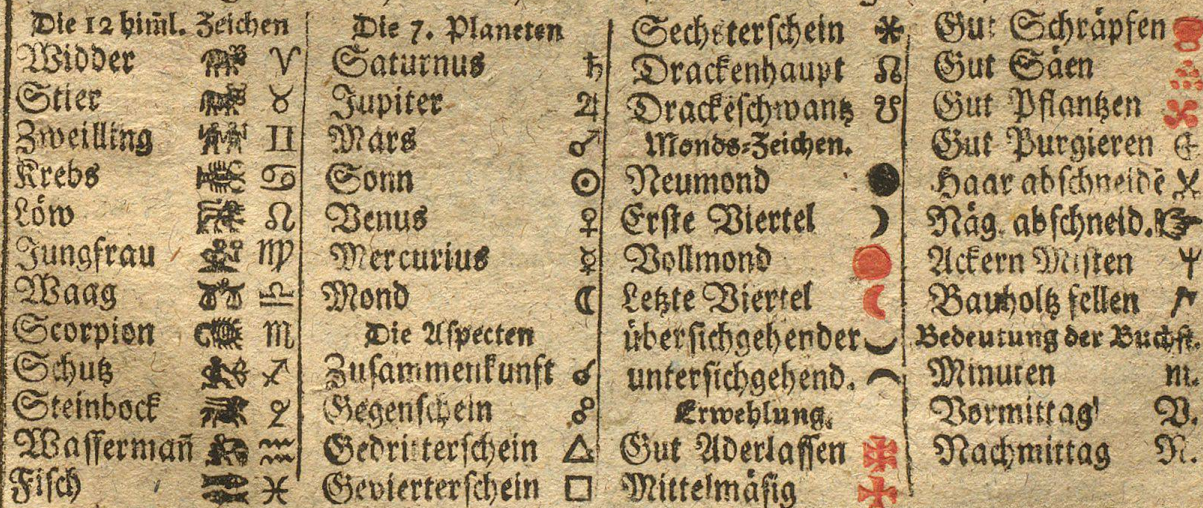 Die 12 him̃l. Zeichen
Widder ♈
Stier ♉
Zweilling ♊
Krebs ♋
Löw ♌
Jungfrau ♍
Waag ♎
Scorpion ♏
Schutz ♐
Steinbock ♑
Wassermañ ♒
Fisch ♓
Die 7. Planeten
Saturnus ♄
Jupiter ♃
Mars ♂
Sonn ☉
Venus ♀
Mercurius ☿
Mond ☾
Die Aspecten
Zusammenkunft ☌
Gegenschein ☍
Gedritterschein △
Gevierterschein □
Sechsterschein ⚹
Drackenhaupt ☊
Drackēschwantz ☋
Monds-Zeichen.
Neumond
Erste Viertel
Vollmond
Letzte Viertel
übersichgehender
untersichgehend.
Erwehlung.
Gut Aderlassen
Mittelmäsig
Gut Schräpfen
Gut Säen
Gut Pflantzen
Gut Purgieren
Haar abschneidē
Näg. abschneid.
Ackern Misten
Bauholtz fellen
Bedeutung der Buchst.
Minuten m.
Vormittag V.
Nachmittag N.